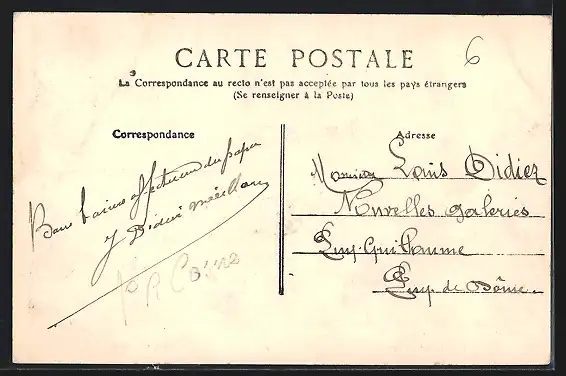 CARTE POSTALE
6
La Correspondance au recto n'est pas acceptée par tous les pays étrangers
(Se renseigner à la Poste)
Correspondance
Bons baisers affectueux du papa
J Didier
Adresse
Monsieur Louis Didier
Nouvelles galeries
Puy-Guillaume
Puy-de-Dôme.